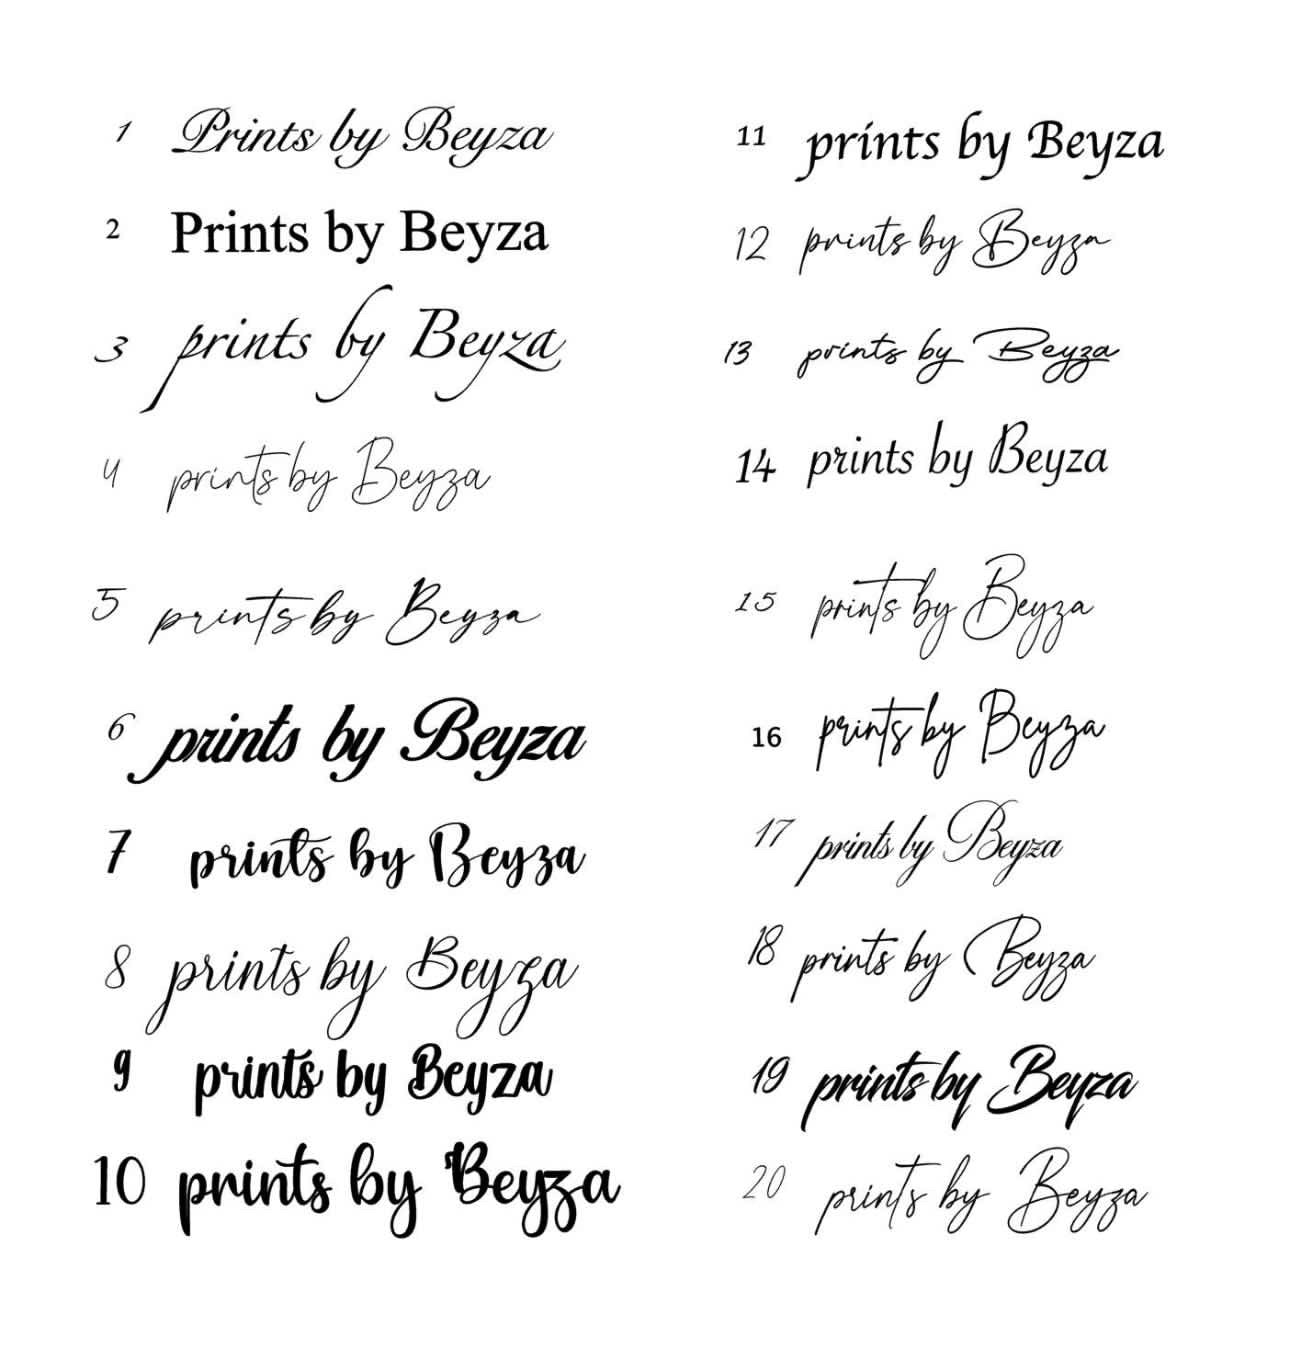 1 Prints by Beyza
2 Prints by Beyza
3 prints by Beyza
4 prints by Beyza
5 prints by Beyza
6 prints by Beyza
7 prints by Beyza
8 prints by Beyza
9 prints by Beyza
10 prints by Beyza
11 prints by Beyza
12 prints by Beyza
13 prints by Beyza
14 prints by Beyza
15 prints by Beyza
16 prints by Beyza
17 prints by Beyza
18 prints by Beyza
19 prints by Beyza
20 prints by Beyza